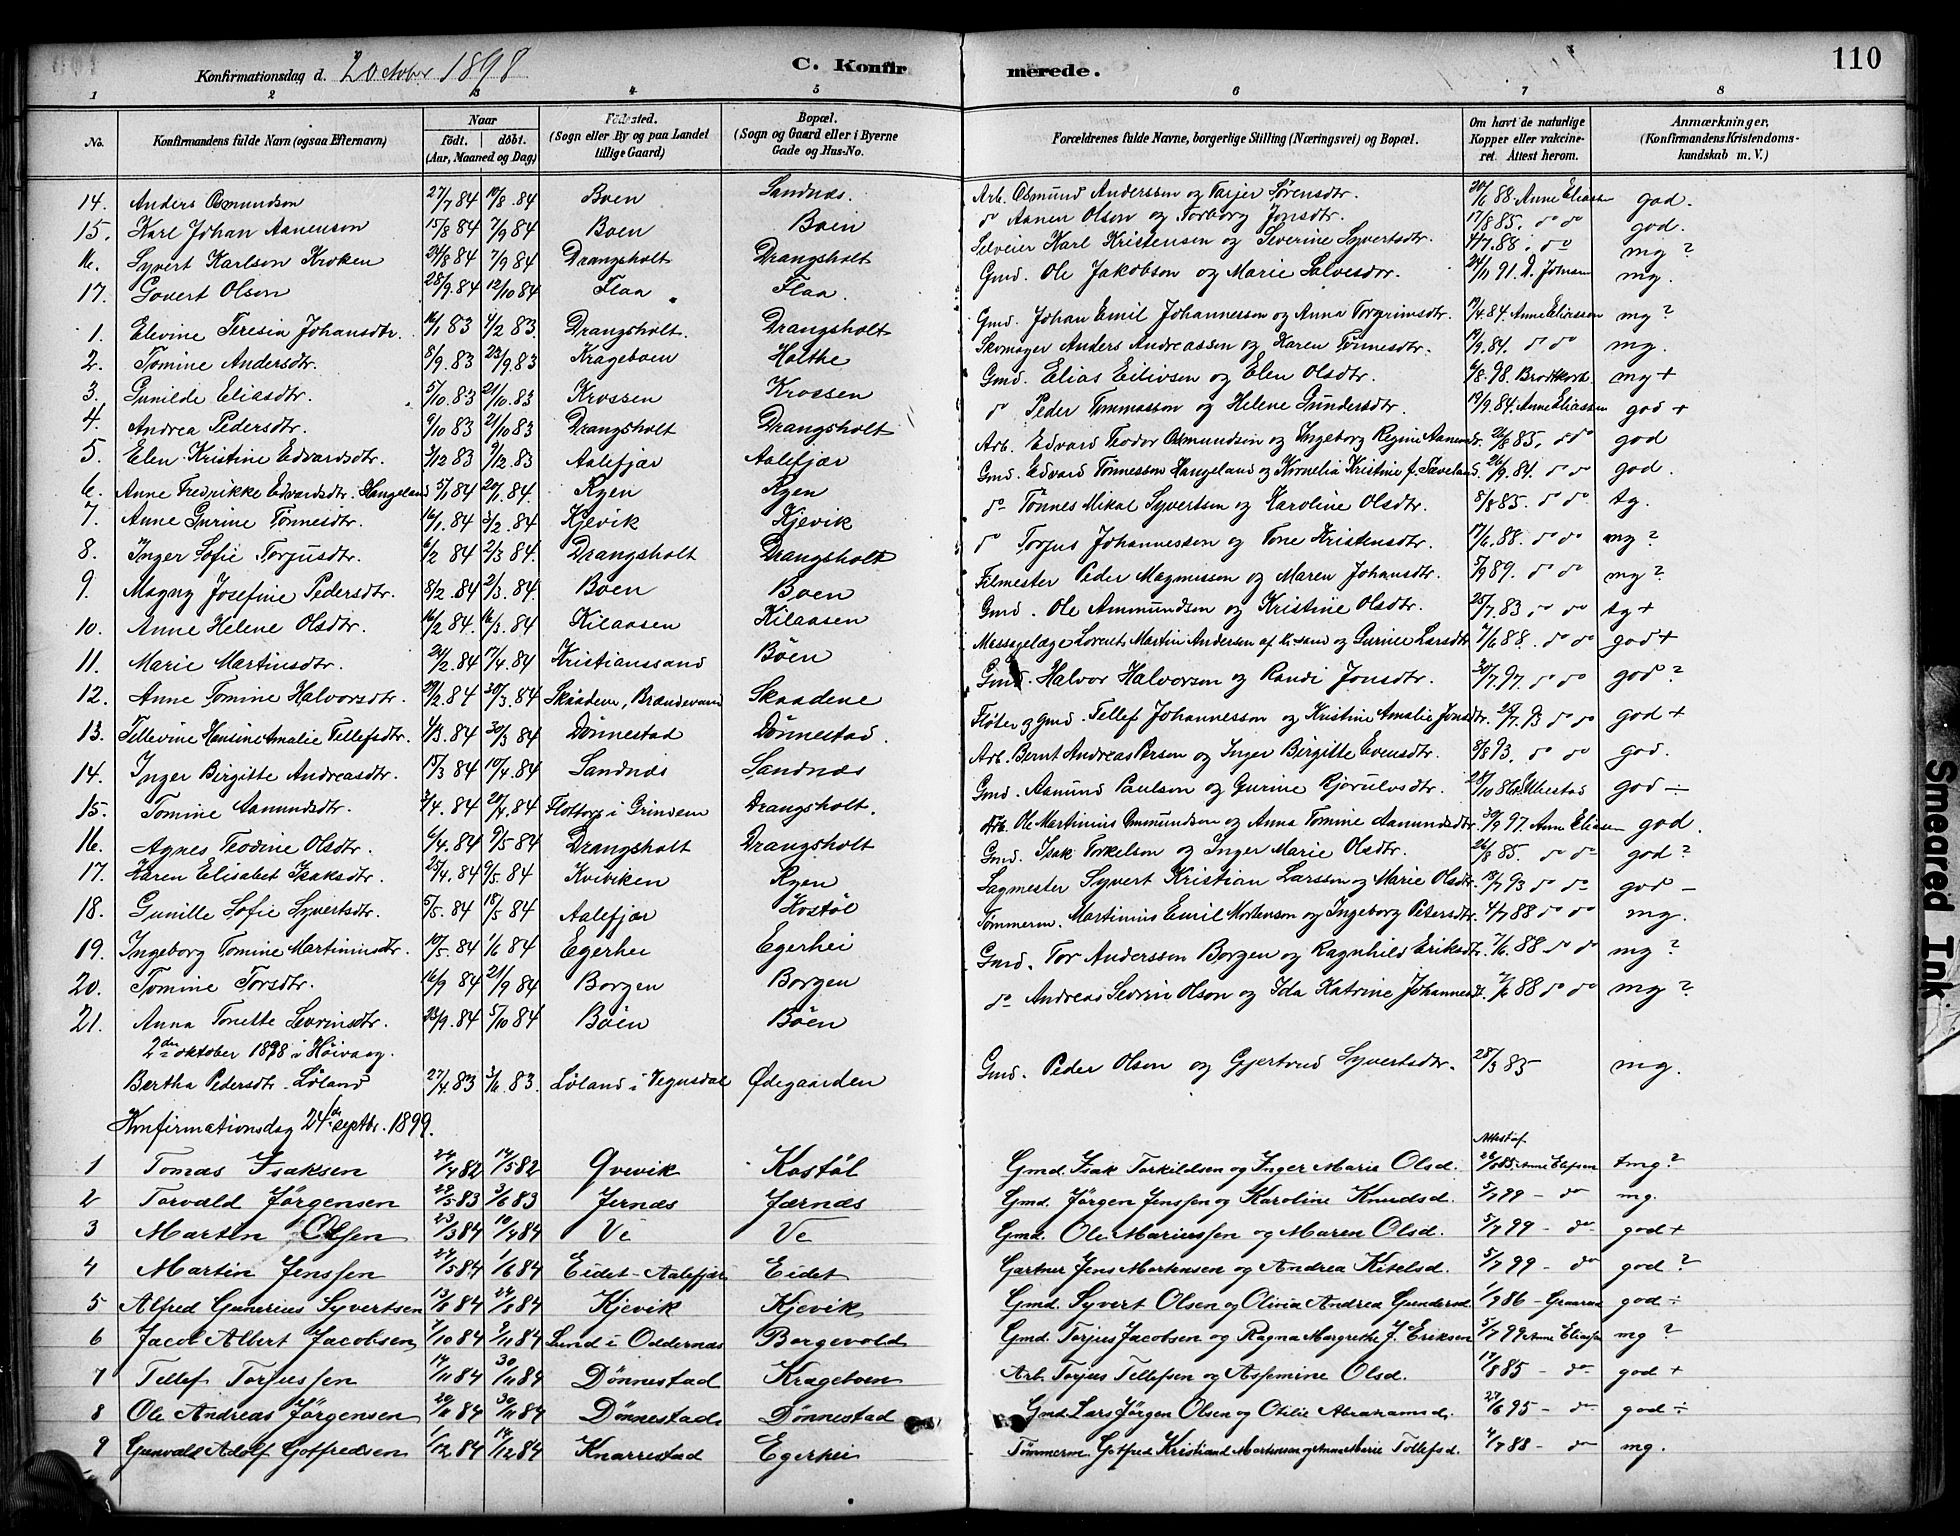 110
Konfirmationsdag d. 2 October 1898
C. Konfirmerede.
1 2 3 4 5 6 7 8
No. | Konfirmandens fulde Navn (ogsaa Efternavn) | Naar født. døbt. (Aar, Maaned og Dag) | Fødested. (Sogn eller By og paa Landet tillige Gaard) | Bopæl. (Sogn og Gaard eller i Byerne Gade og Hus-No. | Forældrenes fulde Navne, borgerlige Stilling (Næringsvei) og Bopæl. | Om havt de naturlige Kopper eller vakcineret. Attest herom. | Anmærkninger. (Konfirmandens Kristendomskundskab m. V.)
14. Anders Osmundson 27/7 84 10/8. 84 Boen Sandnæs. Arb. Osmund Anderssen og Tarjer Sørensdtr. 20/6 88 Anne Eliassen god.
15. Karl Johan Aanenson 15/8 84 7/9 84 Boen Boen do Aanen Olson og Torborg Jonsdtr. 17/8 85. do do god.
16. Syvert Karlson Kroken 24/8 84 7/9 84 Drangsholt Drangsholt Selveier Karl Kristensen og Severine Syvertsdtr. 4/7. 88. do mg ?
17. Govert Olson 28/9. 84 12/10 84 Flaa Flaa. Gmd. Ole Jakobson og Marie Salvesdtr. 24/11 91. mg.
1. Elevine Teresia Johansdtr. 16/1 83 4/2 83. Drangsholt. Drangsholt Gmd. Johan Emil Johannesson og Anna Torgrimsdtr. 17/4. 84. Anne Eliassen mg ?
2. Tomine Andersdtr. 8/9. 83 23/9. 83 Krageboen Holthe Skomager Anders Andreassen og Karen Tønnesdtr. 19/9. 84. do do mg.
3. Gunilde Eliasdtr. 5/10. 83 21/10. 83 Krossen Krossen Gmd. Elias Eilivsen og Elen Olsdtr. 6/8. 98. mg +
4. Andrea Pedersdtr. 9/10 83 21/10 83 Drangsholt Drangsholt do Peder Tommasson og Helene Gundersdtr. 19/9. 84. Anne Eliassen god +
5. Elen Kristine Edvardsdtr. 3/12 83 9/12. 83 Aalefjær Aalefjær Arb. Edvard Teodor Osmundson og Ingeborg Regine Aanensdtr. 26/8 85. do do god
6. Anne Fredrikke Edvardsdtr. Hangeland 5/1 84 20/1. 84. Ryen Ryen Gmd. Edvard Tønnesson Hangeland og Kornelia Kristine f. 26/9. 84. do do god.
7. Anne Gurine Tønnesdtr. 16/1. 84 3/2. 84 Kjevik Kjevik do Tønnes Mikal Syvertsen og Karoline Olsdtr. 8/8 85. do do. tg.
8. Inger Sofie Torjusdtr. 6/2 84 2/3 84. Drangsholt Drangsholt do Torjus Johannesson og Tone Kristensdtr. 17/6. 88. do do mg ?
9. Magny Josefine Pedersdtr. 8/2. 84 2/3. 84. Boen Boen Filmester Peder Magnusson og Maren Johansdtr. 5/9 89. do do mg ?
10. Anne Helene Olsdtr. 16/2 84. 16/3. 84 Kilaasen Kilaasen Gmd. Ole Ammundson og Kristine Olsdtr. 25/7. 83 do do tg +
11. Marie Martinsdtr. 24/2. 84 17/4. 84 Kristianssand Böen Massagelæge Lorents Martin Andersen af Kr.sand og Gurine Larsdtr. 7/6 88. do do god +
12. Anne Tomine Halvorsdtr. 29/2. 84 30/3. 84 Skaadene, Brændevand Skaadene Gmd. Halvor Halvorsen og Randi Jonsdtr. 30/7. 97. do do god ?
13. Tellevine Hansine Amalie Tellefsdtr. 4/3. 84 30/3 84 Dønnestad Dønnestad. Fløter og gmd. Tellef Johannesson og Kristine Amalie Jonsdtr. 29/7. 93 do do god +
14. Inger Birgitte Andreasdtr. 15/3 84 10/4. 84 Sandnæs Sandnæs Arb. Bernt Andreas Persen og Inger Birgitte Evensdtr. 8/8 93. do do god.
15. Tomine Aamundsdtr. 3/4. 84 20/4. 84 Flottorp i Grindem Drangsholt. Gmd. Aamund Paulson og Gurine Gjerulvsdtr. 28/10 86. god ÷
16. Agnes Teodine Olsdtr. 6/4. 84 9/5 84 Drangsholt Drangsholt Arb. Ole Martinius Ommundson og Anna Tomine Aanundsdtr. 30/9 97. Anne Eliassen god.
17. Karen Elisabet Isaksdtr. 25/4. 84 9/5. 84 Kviviken Ryen Gmd. Isak Torkelson og Inger Marie Olsdtr. 26/8 85. do do god ?
18. Gunille Sofie Syvertsdtr. 5/5. 84 18/5 84 Aalefjær Kostøl Sagmester Syvert Kristian Larsson og Marie Olsdtr. 13/7 93 do do god -
19. Ingeborg Tomine Martiniusdtr. 10/5. 84 1/6 84 Egerhei Egerhei Tømmerm. Martinius Emil Mortenson og Ingeborg Petersdtr. 4/7 88 do do mg.
20. Tomine Torsdtr. 16/9 84 21/9 84 Borgen Borgen Gmd. Tor Andersson Borgen og Ragnhild Eriksdtr. 7/6. 88 do do mg ?
21. Anna Tonette Sevrinsdtr. 23/9. 84 5/10 84 Böen Böen do Andreas Sevrin Olson og Ida Katrine Johannesdtr. 7/6 88 do do mg ?
2den oktober 1898 i Höivaag.
Bertha Pedersdtr. Løland 27/4. 83 3/6. 83. Løland i Vegusdal Ødegaarden Gmd. Peder Olson og Gjertrud Syvertsdtr. 28/3 85 mg.
Konfirmationsdag 24de septbr. 1899.
Attest af
1 Tomas Isaksen 24/4 82 14/5 82 Qvevik Kostöl Gmd. Isak Torkildsen og Inger Marie Olsd. 26/8 85 Anne Eliassen tmg ?
2 Torvald Jörgensen 29/5 83 3/6 83 Jernæs Jærnæs Gmd. Jörgen Jenssen og Karoline Knudsd. 5/7 99 - do mg.
3 Martin Olsen 23/3 84 10/4 84 Ve Ve Gmd. Ole Mariussen og Maren Olsd. 5/7 99 - do god +
4 Martin Jenssen 24/5 84 1/6 84 Eidet - Aalefjær Eidet Gartner Jens Mortensen og Andrea Kitelsd. 5/7 99 - do god ?
5 Alfred Gunerius Syvertsen 13/8 84 24/8 84 Kjevik Kjevik Gmd. Syvert Olsen og Olivia Andrea Gundersd. 1/9 86 - god ÷
6 Jacob Albert Jacobsen 7/10 84 9/11 84 Lund i Oddernæs Borgevold Gmd. Torjus Jacobsen og Ragna Margrethe J. Eriksen 5/7 99 Anne Eliassen mg ?
7 Tellef Torjussen 14/11 84 30/11 84 Dönnestad Krageboen Arb. Torjus Tellefsen og Assemine Olsd. 17/8 85 - do god +
8 Ole Andreas Jörgensen 20/11 84 30/11 84 Dönnestad Dönnestad Gmd. Lars Jörgen Olsen og Otilie Abrahamsd. 27/6 95 - do god ÷
9 Gunvald Adolf Gotfredsen 1/12 84 14/12 84 Knarrestad Egerhei Tömmerm. Gotfred Kristiand Mortensen og Anne Marie Tollefsd. 4/7 88 - do mg.
Smeared Ink